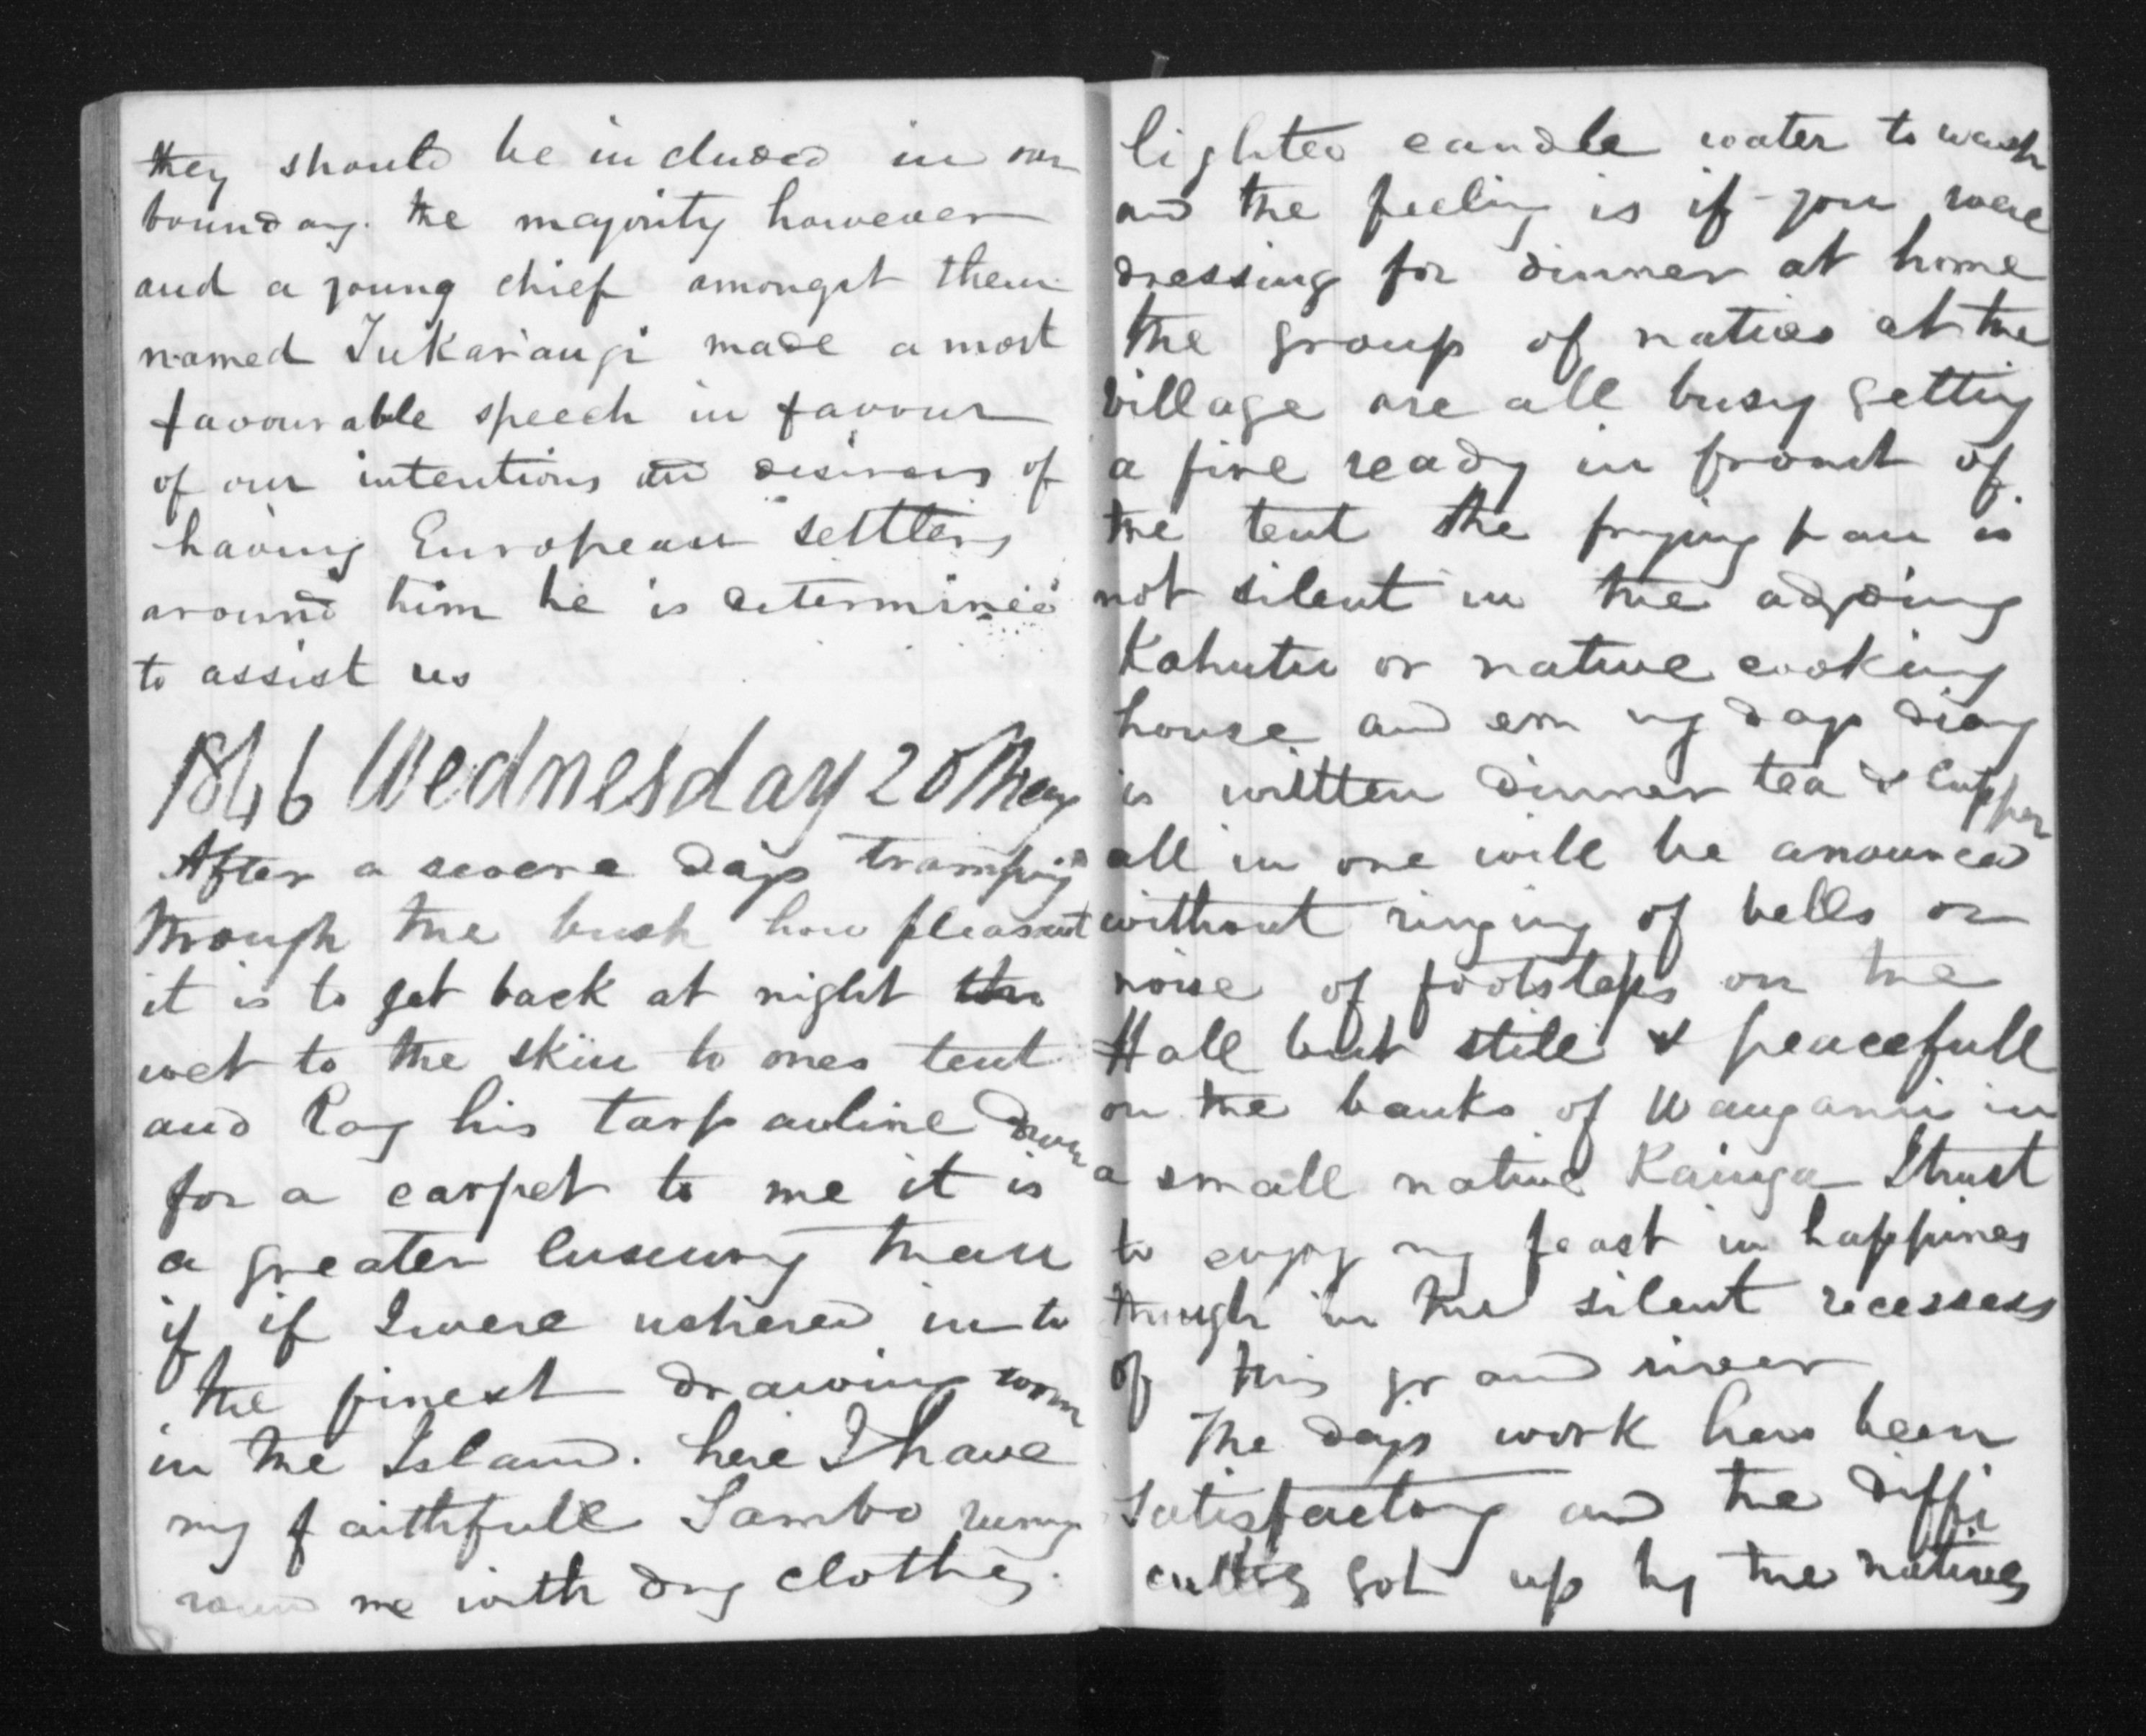 they should be included in our
boundary. the majority however
and a young chief amongst them
named Tukarangi made a most
favourable speech in favour
of our intentions and desirous of
having European settlers
around him he is determined
to assist us
1846 Wednesday 20 May
After a severe days tramping
through the bush how pleasant
it is to get back at night
wet to the skin to ones tent
and Lay his tarpauline down
for a carpet to me it is
a greater luxury than
if if I were ushered into
the finest drawing room
in the Island. here I have
my faithfull Sambo
round me with dry clothes.
lighted candle water to wash
and the feeling is if you were
dressing for dinner at home
the group of natives at the
village are all busy getting
a fire ready in front of
the tent the frying pan is
not silent in the
Kahutu or native cooking
house and my days diary
is written dinner tea & supper
all in one will be anounced
without ringing of bells or
noise of footsteps on the
Hall but still & peacefull
on the banks of Wanganui in
a small native Kainga I trust
to enjoy my feast in happines
though in the silent recessess
of this grand river
The days work has been
satisfactory and the diffi
culties got up by the natives